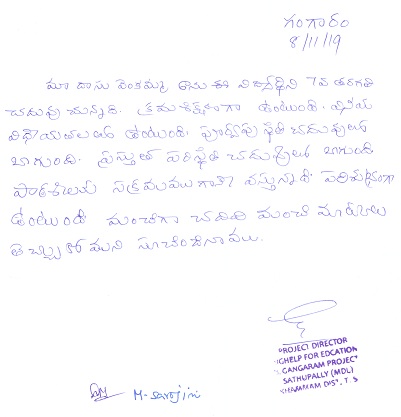 గంగారం
8/11/19
మా దాసు వెంకమ్మ అను ఈ విద్యార్థిని 7వ తరగతి
చదువు చున్నది. క్రమశిక్షణగా ఉంటుంది. వినయ
విధేయతలతో ఉంటుంది. పూర్వపు స్థితి చదువులో
బాగుంది. ప్రస్తుత పరిస్థితి చదువులో బాగుంది
పాఠశాలకు సక్రమముగానే వస్తున్నది. పరిశుభ్రంగా
ఉంటుంది మంచిగా చదివి మంచి మార్కులు
తెచ్చుకోమని సూచించినాము.
PROJECT DIRECTOR
HELP FOR EDCATION
GANGARAM PROJECT
SATHUPALLY (MDL)
KHAMMAM DIST. T.S
M. Sarojini